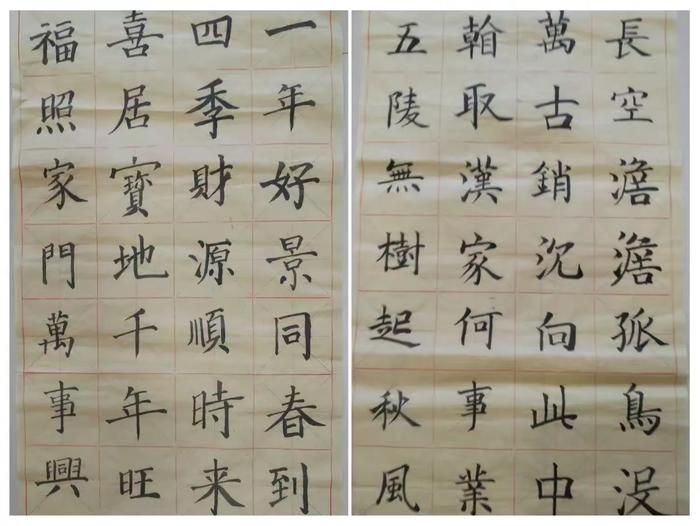 一年好景同春到
四季財源順時来
喜居寶地千年旺
福照家門萬事興
長空澹澹孤鳥没
萬古銷沉向此中
翰取漢家何事業
五陵無樹起秋風